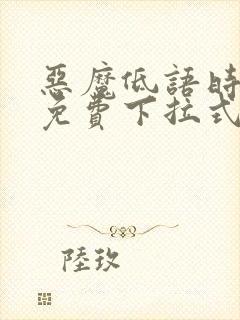 惡魔低語時
免費下拉式
陸玖